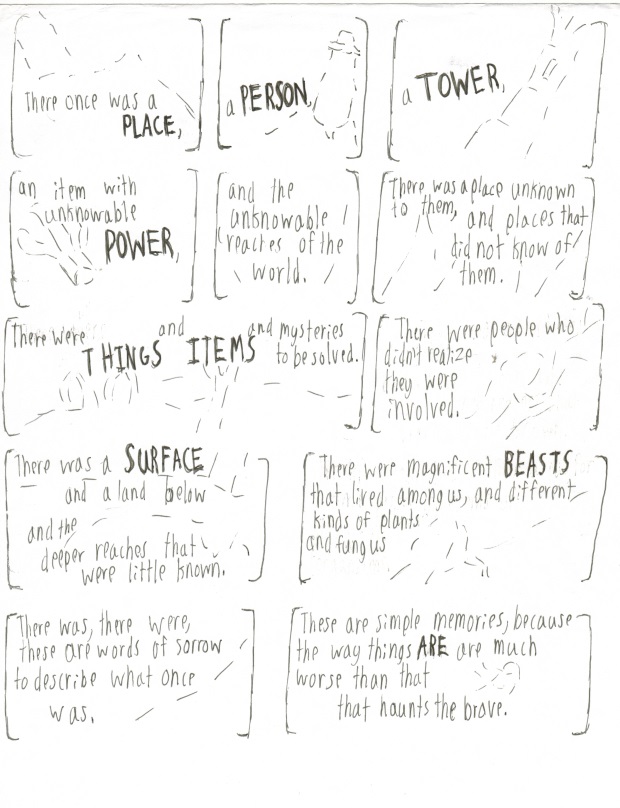 There once was a
PLACE,
a PERSON,
a TOWER,
an item with
unknowable
POWER,
and the
unknowable
reaches of the
world.
There was a place unknown
to them, and places that
did not know of
them.
There were THINGS and ITEMS and mysteries
to be solved.
There were people who
didn't realize
they were
involved.
There was a SURFACE
and a land below
and the
deeper reaches that
were little known.
There were magnificent BEASTS
that lived among us, and different
kinds of plants
and fungus
There was, there were,
these are words of sorrow
to describe what once
was.
These are simple memories, because
the way things ARE are much
worse than that
that haunts the brave.